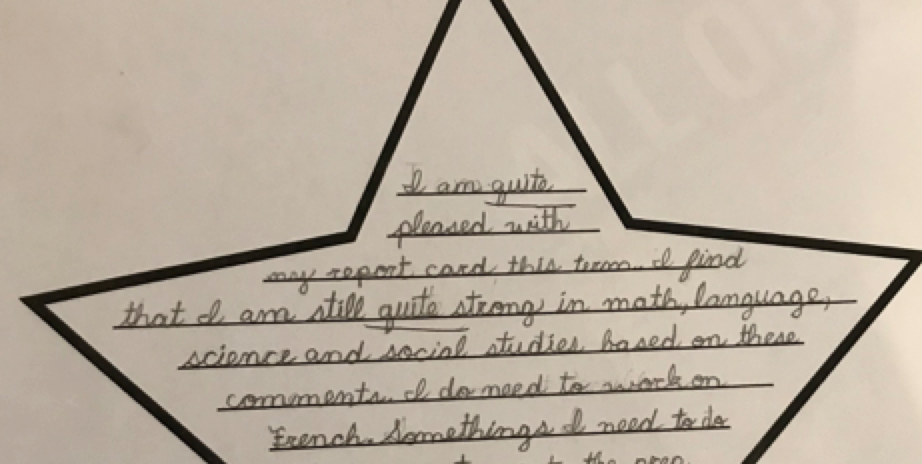 I am quite
pleased with
my report card this term. I find
that I am still quite strong in math, language,
science and social studies based on these
comments. I do need to work on
French. Somethings I need to do
to the